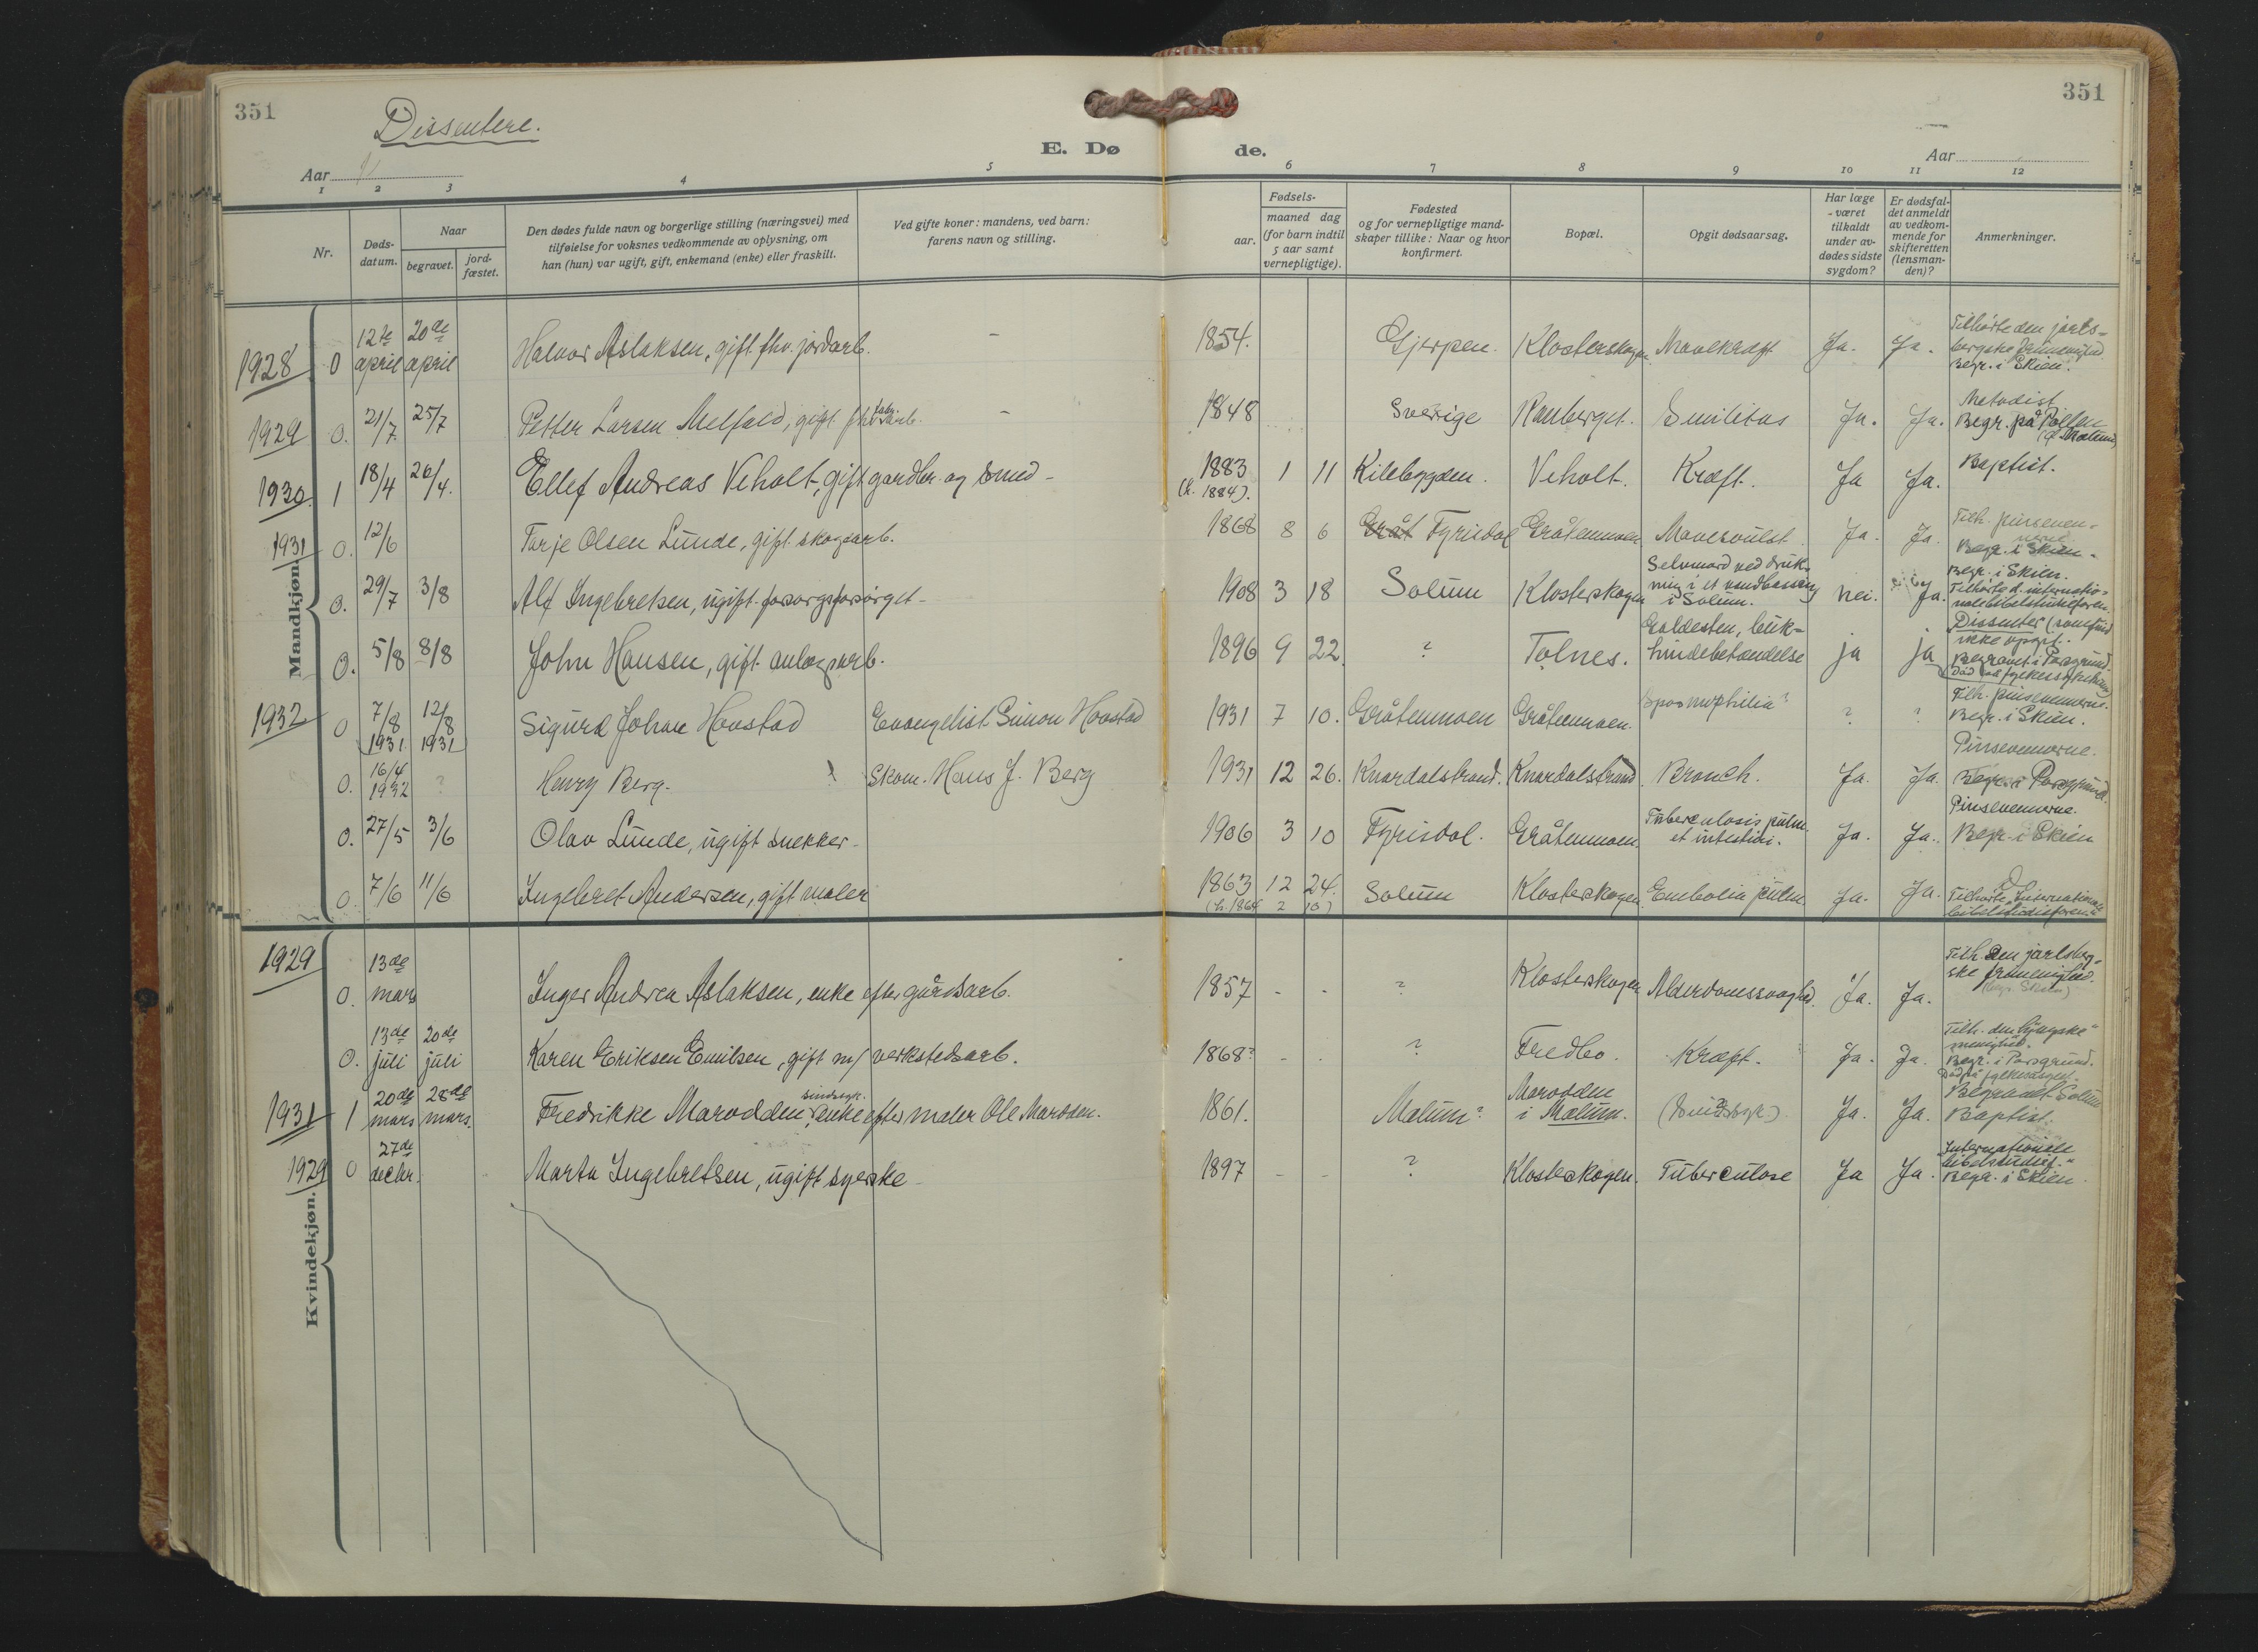 351
351
Dissentere.
E. Dø
de.
Aar
Aar
1 2 3 4 5 6 7 8 9 10 11 12
Nr.
Døds-
datum.
Naar
begravet.
jord-
fæstet.
Den dødes fulde navn og borgerlige stilling (næringsvei) med
tilføielse for voksnes vedkommende av oplysning, om
han (hun) var ugift, gift, enkemand (enke) eller fraskilt.
Ved gifte koner: mandens, ved barn:
farens navn og stilling.
Fødsels-
aar.
maaned dag
(for barn indtil
5 aar samt
vernepligtige).
Fødested
og for vernepligtige mand-
skaper tillike: Naar og hvor
konfirmert.
Bopæl.
Opgit dødsaarsag.
Har læge
været
tilkaldt
under av-
dødes sidste
sygdom?
Er dødsfal-
det anmeldt
av vedkom-
mende for
skifteretten
(lensman-
den)?
Anmerkninger.
Mandkjøn.
1928 0 12te april 20de april Halvor Aslaksen, gift fhv. jordarb. - 1854. Gjerpen. Klosterskogen Mavekræft Ja. Ja. Tilhørte den jarls-
bergske frimenighed.
Begr. i Skien.
1929 0. 21/7 25/7 Petter Larsen Melfald, gift fhv. fabr. arb. - 1848 Sverige Ranberget. Senilitas Ja. Ja. Metodist
Begr. på Pollen
1930 1 18/4 26/4. Ellef Andreas Veholt, gift gardbr. og smed - 1883 1 11 Kilebygden. Veholt. Kræft. Ja Ja. Baptist.
(k. 1884).
1931 0. 12/6 Tarje Olsen Lunde, gift skogsarb. 1868 8 6 Gråt Fyrisdal Gråtenmoen Mavesvulst. Ja. Ja. Tilh. pinseven-
nerne.
Begr. i Skien.
0. 29/7 3/8 Alf Ingebretsen, ugift forsorgsforsørget - 1908 3 18 Solum Klosterskogen Selvmord ved druk-
ning i et vandbasseng
i Solum. Nei. Ja. Begr. i Skien.
Tilhørte d. internatio-
nale bibelstudieforen.
0. 5/8 8/8 John Hansen, gift anlægsarb. 1896 9 22 ? Tolnes. Galdesten, buk-
hindebetændelse ja ja Dissenter (samfund
ikke opgit.
Begravet i Porsgrund.
Død på fylkessykehus
1932 0 7/8 1931 12/8 1931 Sigurd Johan Hovstad Evangelist Simon Hovstad 1931 7 10. Gråtenmoen Gråtenmoen. Spasmophilia? ? ? Tilh. pinsevennerne.
Begr. i Skien.
0. 16/4 1932 ? Henry Berg. Skom. Hans J. Berg 1931 12 26. Knardalstrand. Knardalstrand. Bronch. Ja. Ja. Pinsevennerne.
Begr. i Porsgrund.
0. 27/5 3/6 Olav Lunde, ugift snekker - 1906 3 10 Fyrisdal. Gråtenmoen. Tuberculosis pulm.
et intestini. Ja. Ja. Pinsevennerne.
Begr. i Skien
0. 7/6 11/6 Ingebret Andersen, gift maler 1863 12 24. Solum Klosterskogen Embolia pulm. Ja. Ja. Tilhørte D. Internationale
bibelstudieforen.
(h. 1864 2 10)
Kvindekjøn.
1929 0. 13de mars Inger Andrea Aslaksen, enke efter gårdsarb. 1857 - - ? Klosterskogen Alderdomssvaghed. Ja. Ja. Tilh. Den jarlsberg-
ske frimenighed.
(begr. Skien)
0. 13de juli 20de juli Karen Eriksen Emilsen, gift m/ verkstedsarb. 1868? - - ? Fredbo. Kræft. Ja. Ja. Tilh. den
menighed.
Begr. i Porsgrund.
1931 1 20de mars 28de mars. Fredrikke Marodden, sindssyk. enke efter maler Ole Marodden. 1861. Mælum? Marodden
i Mælum. (Sindssyk.) Ja. Ja. Begravet Solum
Baptist.
1929 0 27de decbr. Marta Ingebretsen, ugift syerske - 1897 - - ? Klosterskogen. Tuberculose Ja Ja. Internationale
bibelstudief.
Begr. i Skien.